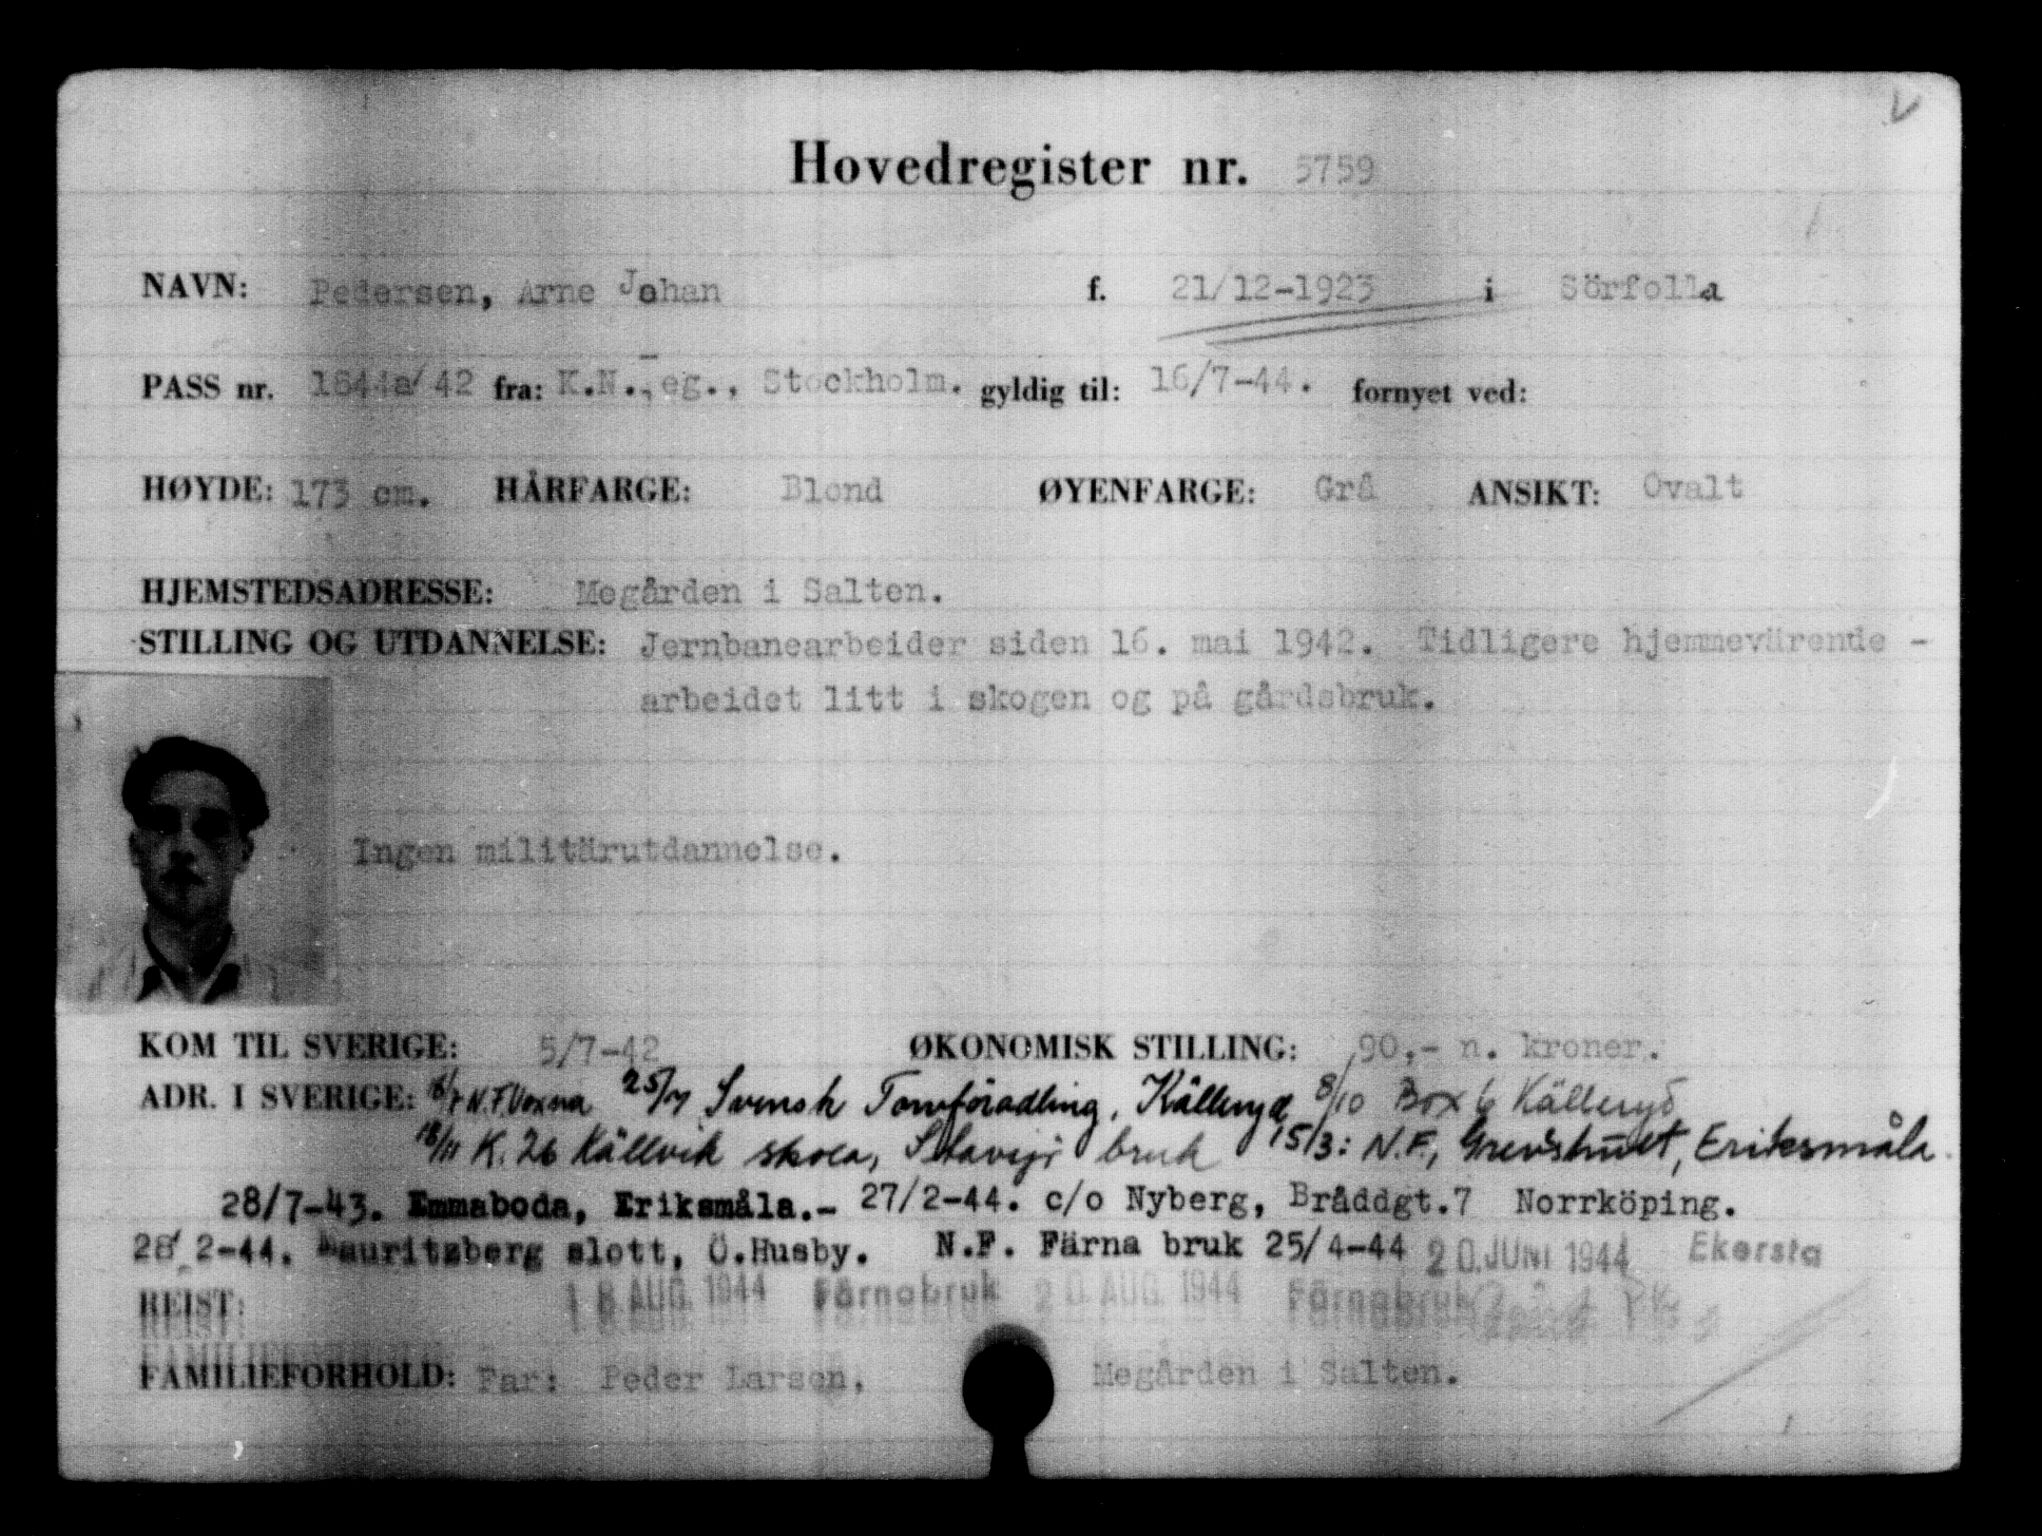 Hovedregister nr. 5759
NAVN: Pedersen, Arne Johan f. 21/12-1923 i Sörfolla
PASS nr. 1844a/42 fra: K.N.Leg., Stockholm. gyldig til: 16/7-44. fornyet ved:
HØYDE: 173 cm. HÅRFARGE: Blond ØYENFARGE: Grå ANSIKT: Ovalt
HJEMSTEDSADRESSE: Megården i Salten.
STILLING OG UTDANNELSE: Jernbanearbeider siden 16. mai 1942. Tidligere hjemmevärende -
arbeidet litt i skogen og på gårdsbruk.
Ingen militärutdannelse.
KOM TIL SVERIGE: 5/7-42 ØKONOMISK STILLING: 90,- n. kroner.
ADR. I SVERIGE: N.F. Voxna 25/7 Svensk Torvförädling, Källeryd 8/10 Box 6 Källeryd
18/11 K. 26 Källvik skola, Stavsjö bruk 15/3: N.F., Grevshult, Eriksmåla.
28/7-43. Emmaboda, Eriksmåla.- 27/2-44. c/o Nyberg, Bråddgt.7 Norrköping.
28/2-44. Mauritzberg slott, Ö.Husby. N.F. Färna bruk 25/4-44 20. JUNI 1944 Ekersta
REIST: 18. AUG. 1944 Färnabruk 20. AUG. 1944 Färnabruk
FAMILIEFORHOLD: Far: Peder Larsen, Megården i Salten.